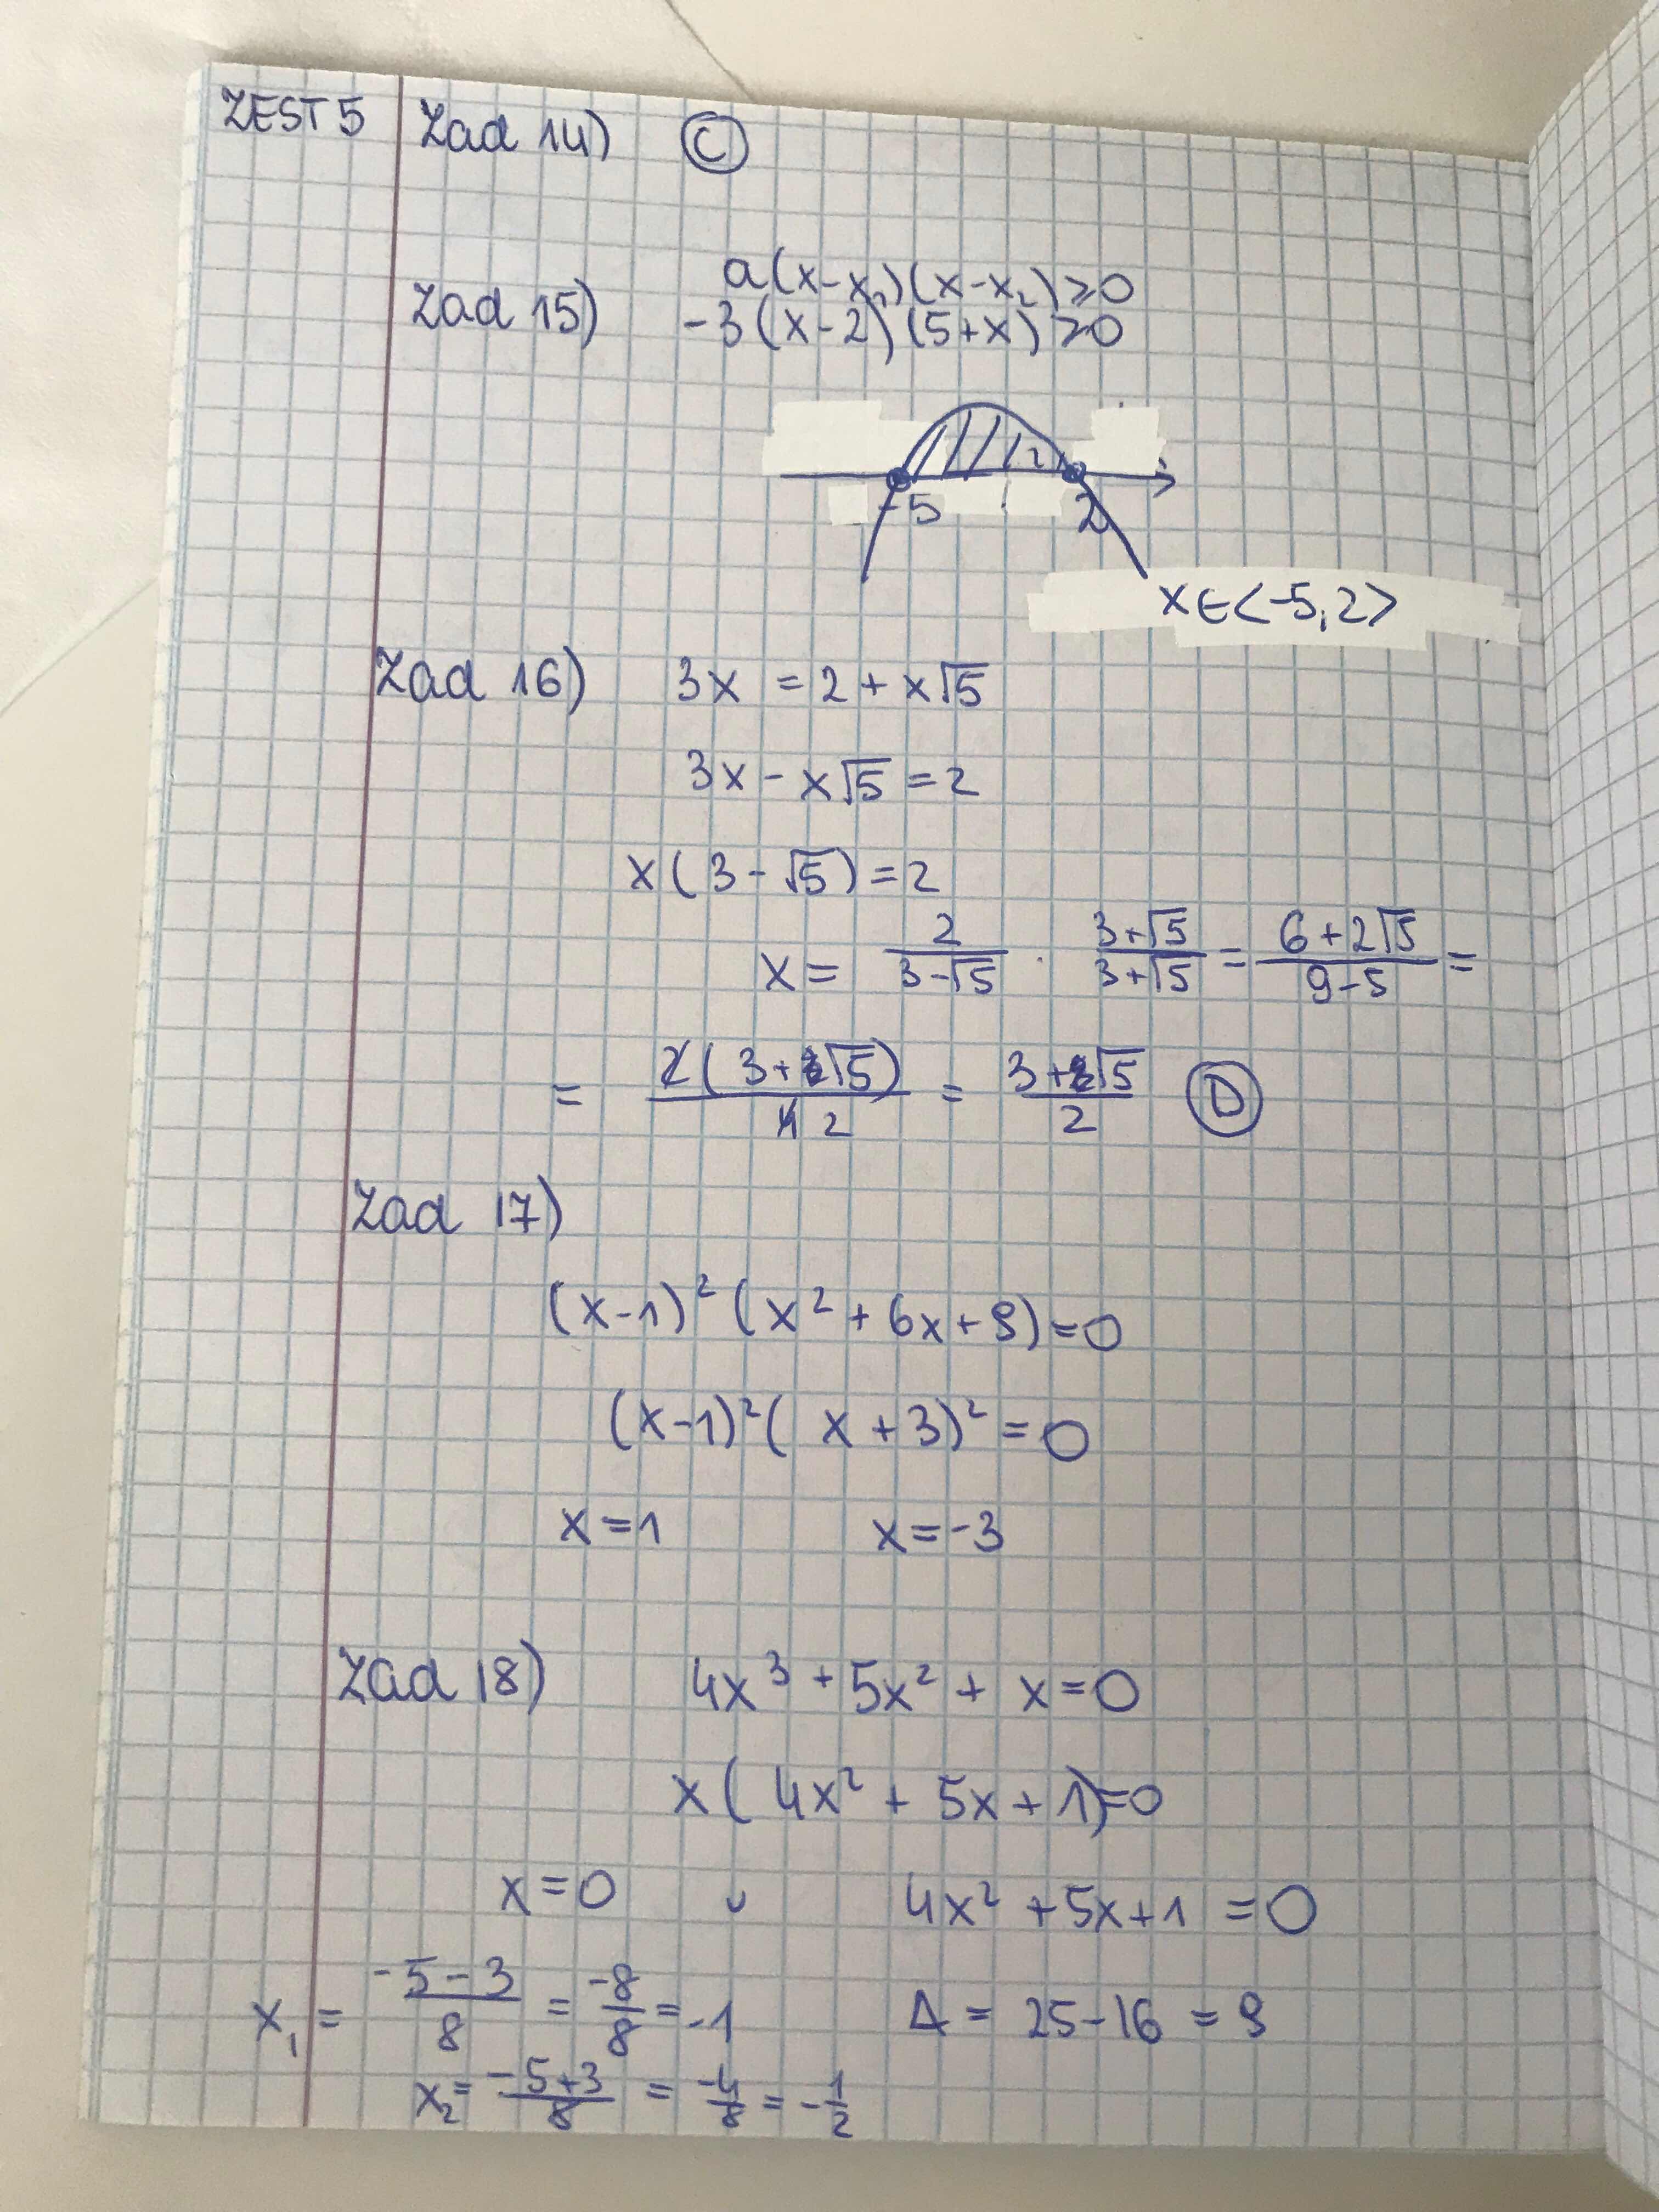 ZEST 5 Zad 14) C
a(x-x₁)(x-x₂)≥0
Zad 15) -3(x-2)(5+x)≥0
-5 2
x∈<-5,2>
Zad 16) 3x = 2 + x√5
3x - x√5 = 2
x(3-√5) = 2
x = 2/(3-√5) · (3+√5)/(3+√5) = (6+2√5)/(9-5) =
= 2(3+√5)/4 2 = (3+√5)/2 D
Zad 17)
(x-1)² (x² + 6x + 9) = 0
(x-1)² (x + 3)² = 0
x = 1 x = -3
Zad 18) 4x³ + 5x² + x = 0
x(4x² + 5x + 1) = 0
x = 0 ∪ 4x² + 5x + 1 = 0
x₁ = (-5-3)/8 = -8/8 = -1 Δ = 25-16 = 9
x₂ = (-5+3)/8 = -4/8 = -1/2